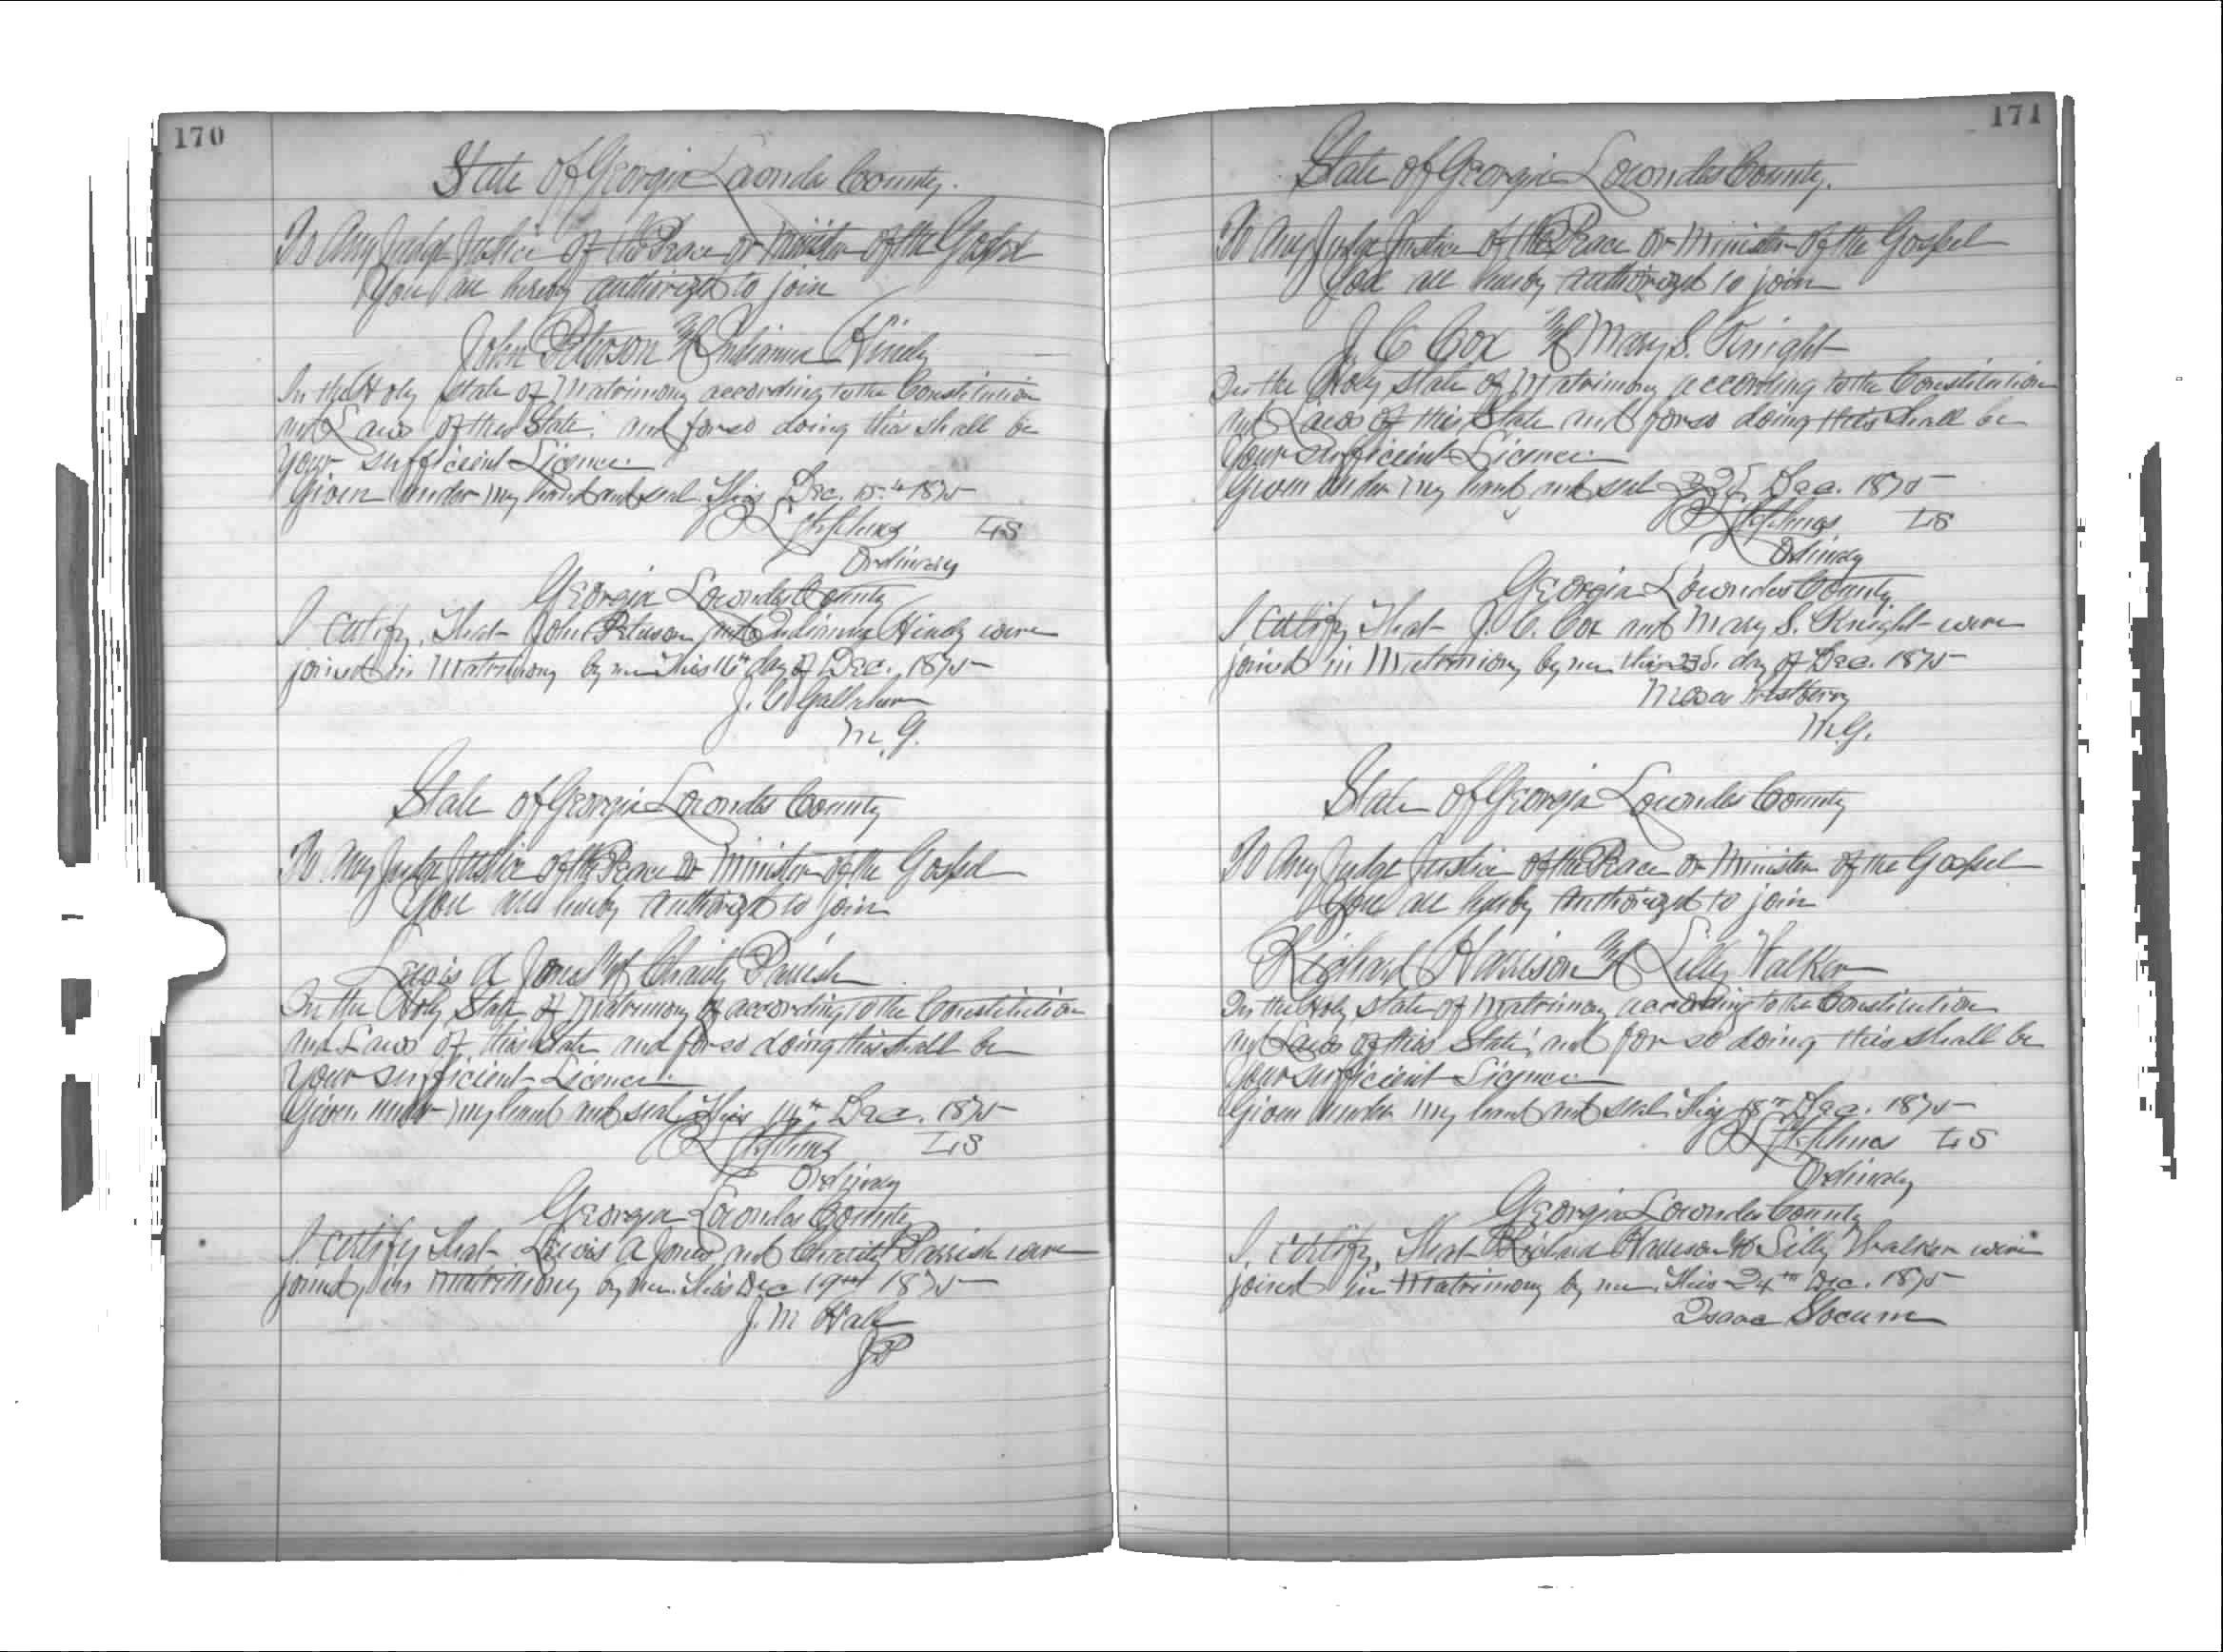 170
State of Georgia Lowndes County.
To Any Judge Justice of the Peace or Minister of the Gospel
You are hereby authorized to join
John Peterson & Indianna
In the Holy state of Matrimony according to the Constitution
and Laws of this State. and for so doing this shall be
your sufficient Licence.
Given under my hand and seal This Dec. 15th 1875
LS
Ordinary
Georgia Lowndes County
I certify, That John Peterson and Indianna were
joined in Matrimony by me This 16th day of Dec. 1875
J.
M. G.
State of Georgia Lowndes County
To Any Judge Justice of the Peace or Minister of the Gospel
You are hereby authorized to join
Lewis A Jones & Charity Parrish
In the Holy State of Matrimony according to the Constitution
and Laws of this State and for so doing this shall be
your sufficient Licence.
Given under my hand and seal This 14th Dec. 1875
LS
Ordinary
Georgia Lowndes County
I certify That Lewis A Jones and Charity Parrish were
joined in Matrimony by me. This Dec 19th 1875
J. M Hall
JP
171
State of Georgia Lowndes County.
To Any Judge Justice of the Peace or Minister of the Gospel
You are hereby authorized to join
J. C Cox & Mary S. Knight
In the Holy state of Matrimony according to the Constitution
and Laws of this State and for so doing this shall be
Your sufficient Licence.
Given under my hand and seal Dec. 1875
LS
Ordinary
Georgia Lowndes County
I certify, That J. C. Cox and Mary S. Knight were
joined in Matrimony by me this 23d. day of Dec. 1875
Westberry
M.G.
State of Georgia Lowndes County
To Any Judge Justice of the Peace or Minister of the Gospel
You are hereby authorized to join
Richard Harrison & Lilly Walker
In the Holy state of Matrimony according to the Constitution
and Laws of this State, and for so doing this shall be
Your sufficient Licence.
Given under my hand and seal This 18th Dec. 1875
LS
Ordinary
Georgia Lowndes County
I, certify, That Richard Harrison & Lilly Walker were
joined in Matrimony by me. This 24th Dec. 1875
Isaac Slocum